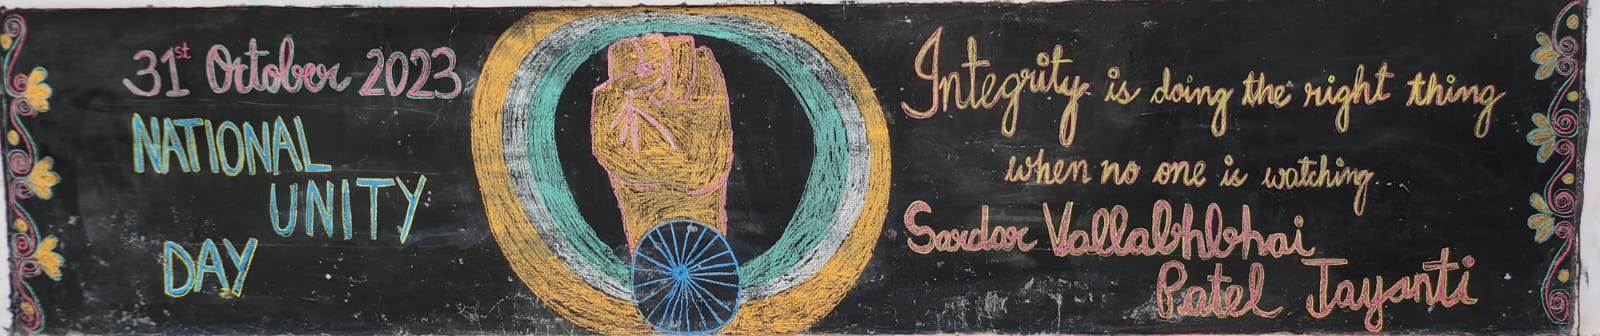 31st October 2023
NATIONAL
UNITY
DAY
Integrity is doing the right thing
when no one is watching...
Sardar Vallabhbhai
Patel Jayanti